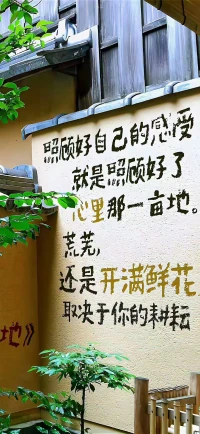 照顾好自己的感受
就是照顾好了
心里那一亩地。
荒芜,
还是开满鲜花
取决于你的耕耘
地》